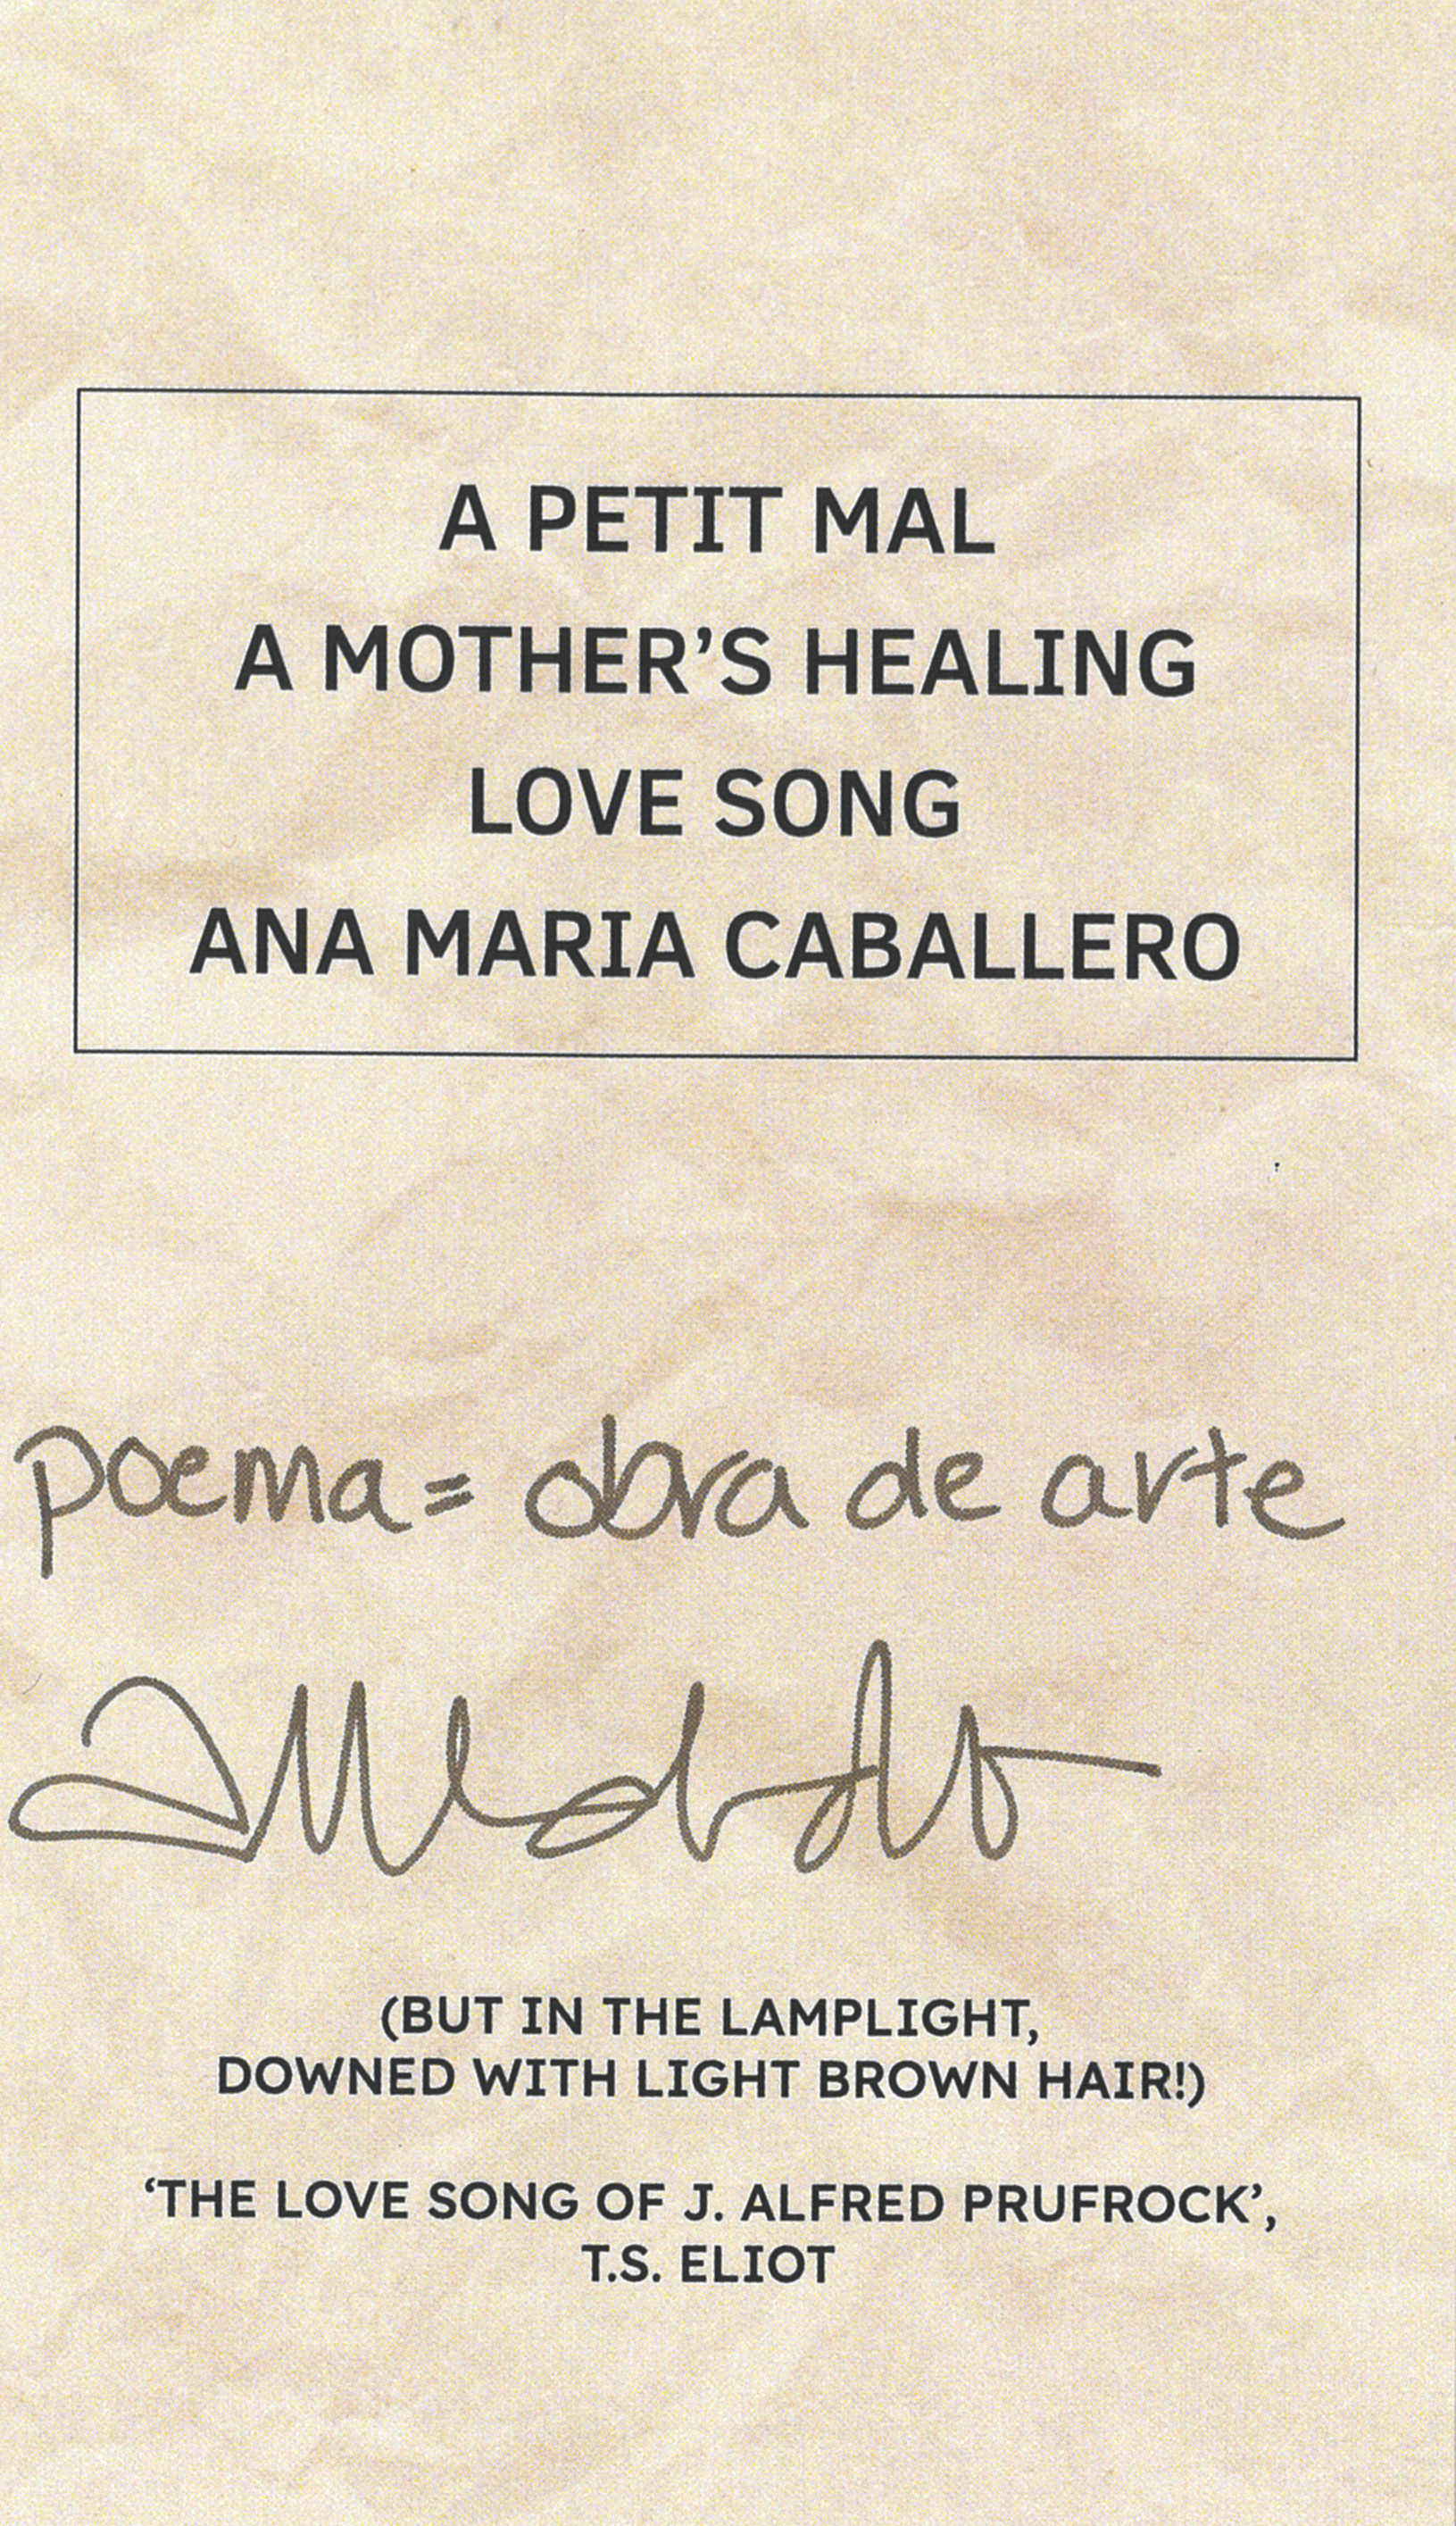 A PETIT MAL
A MOTHER’S HEALING
LOVE SONG
ANA MARIA CABALLERO
poema = obra de arte
(BUT IN THE LAMPLIGHT,
DOWNED WITH LIGHT BROWN HAIR!)
‘THE LOVE SONG OF J. ALFRED PRUFROCK’,
T.S. ELIOT